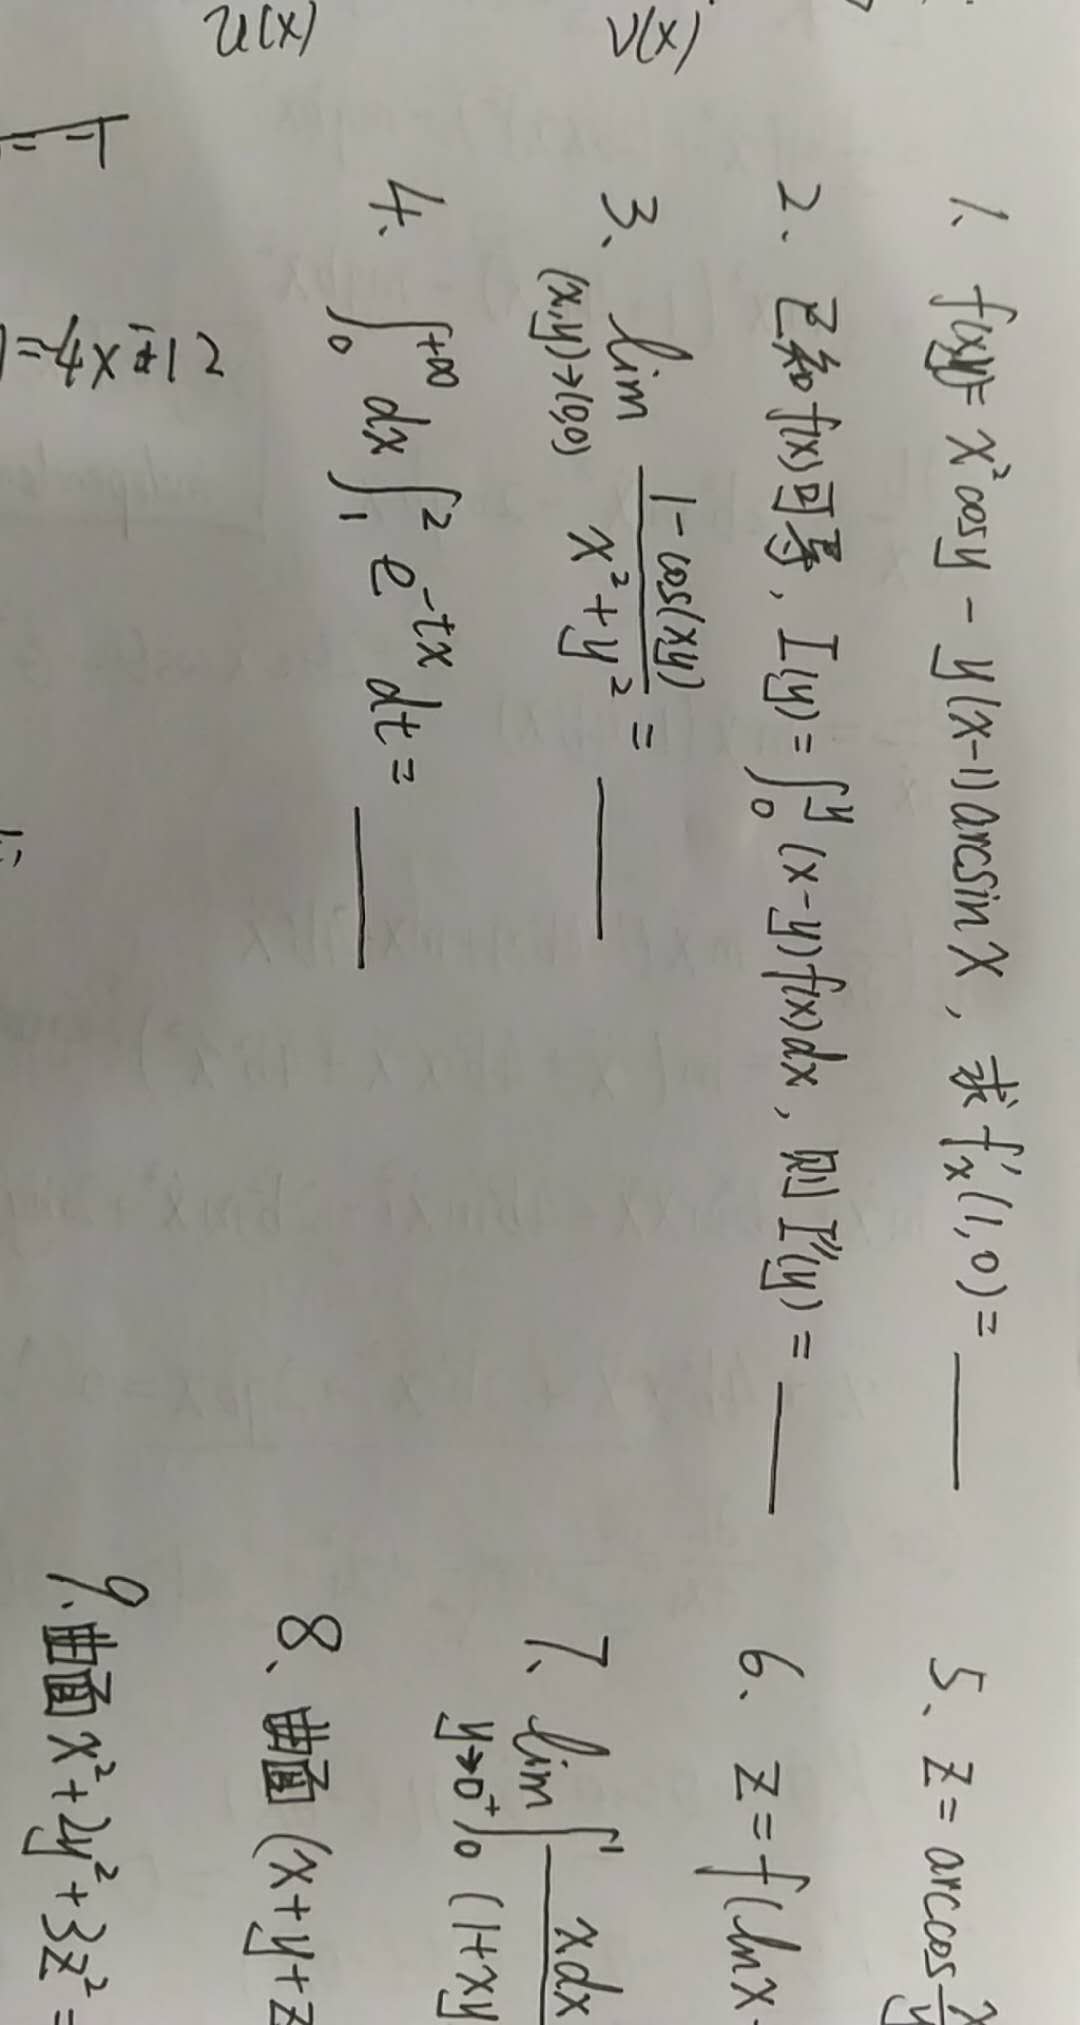 u(x)
v(x)
1. f(x,y)= x²cosy - y(x-1)arcsinx, 求 f'ₓ(1,0) = ____
2. 已知 f(x)可导, I(y)= ∫₀^y (x-y)f(x)dx, 则 I''(y) = ____
3、 lim_{(x,y)→(0,0)} (1-cos(xy))/(x²+y²) = ____
4. ∫₀^{+∞} dx ∫₁² e^{-tx} dt = ____
5、 z = arccos x/y
6. z = f(lnx
7、 lim_{y→0⁺} ∫₀¹ xdx/(1+xy
8、 曲面 (x+y+z
9. 曲面 x²+2y²+3z² =